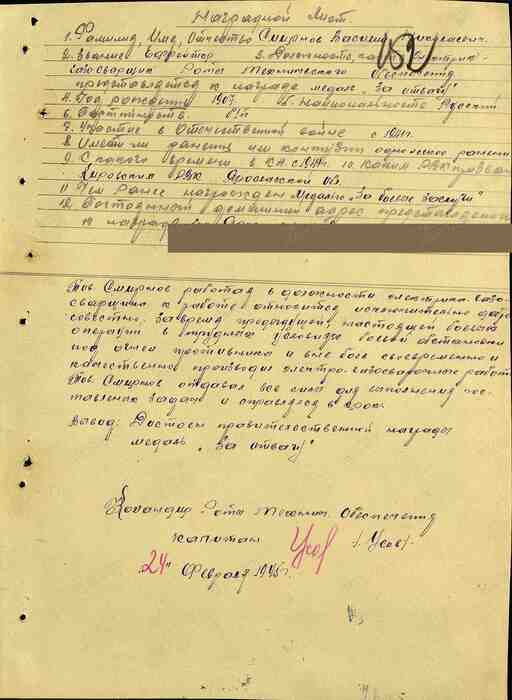 Наградной Лист.
1. Фамилия, Имя, Отчество Смирнов Василий
152
2. Звание Ефрейтор 3. Должность,
газосварщик Рота Технического Обеспечения
представляется к награде медаль „За отвагу"
4. Год рождения 1907 5. Национальность Русский
6. Партийность б/п
7. Участие в Отечественной войне с 1941г.
8. Имеет ли ранения или контузии одно легко ранение
9. С какого времени в КА с 1941г. 10 Каким РВК призван
Кировским РВК Ярославской Обл.
11. Чем Ранее награжден Медалью „За боевые заслуги"
12. Постоянный домашний адрес представляемого
к награде
Тов. Смирнов работая в должности электрика-газо-
сварщика к работе относится исключительно добро-
совестно. За время предыдущей и настоящей боевых
операций в трудных условиях боевой обстановки
под огнем противника и вне боя своевременно и
качественно производил электро-газосварочные работы
Тов. Смирнов отдавал все силы для выполнения пос-
тавленных задач и справлялся в срок.
Вывод: Достоин правительственной награды
медаль „За отвагу"
Командир Роты Технич. Обеспечения
капитан Усов /Усов/.
„24" Февраля 1945г.